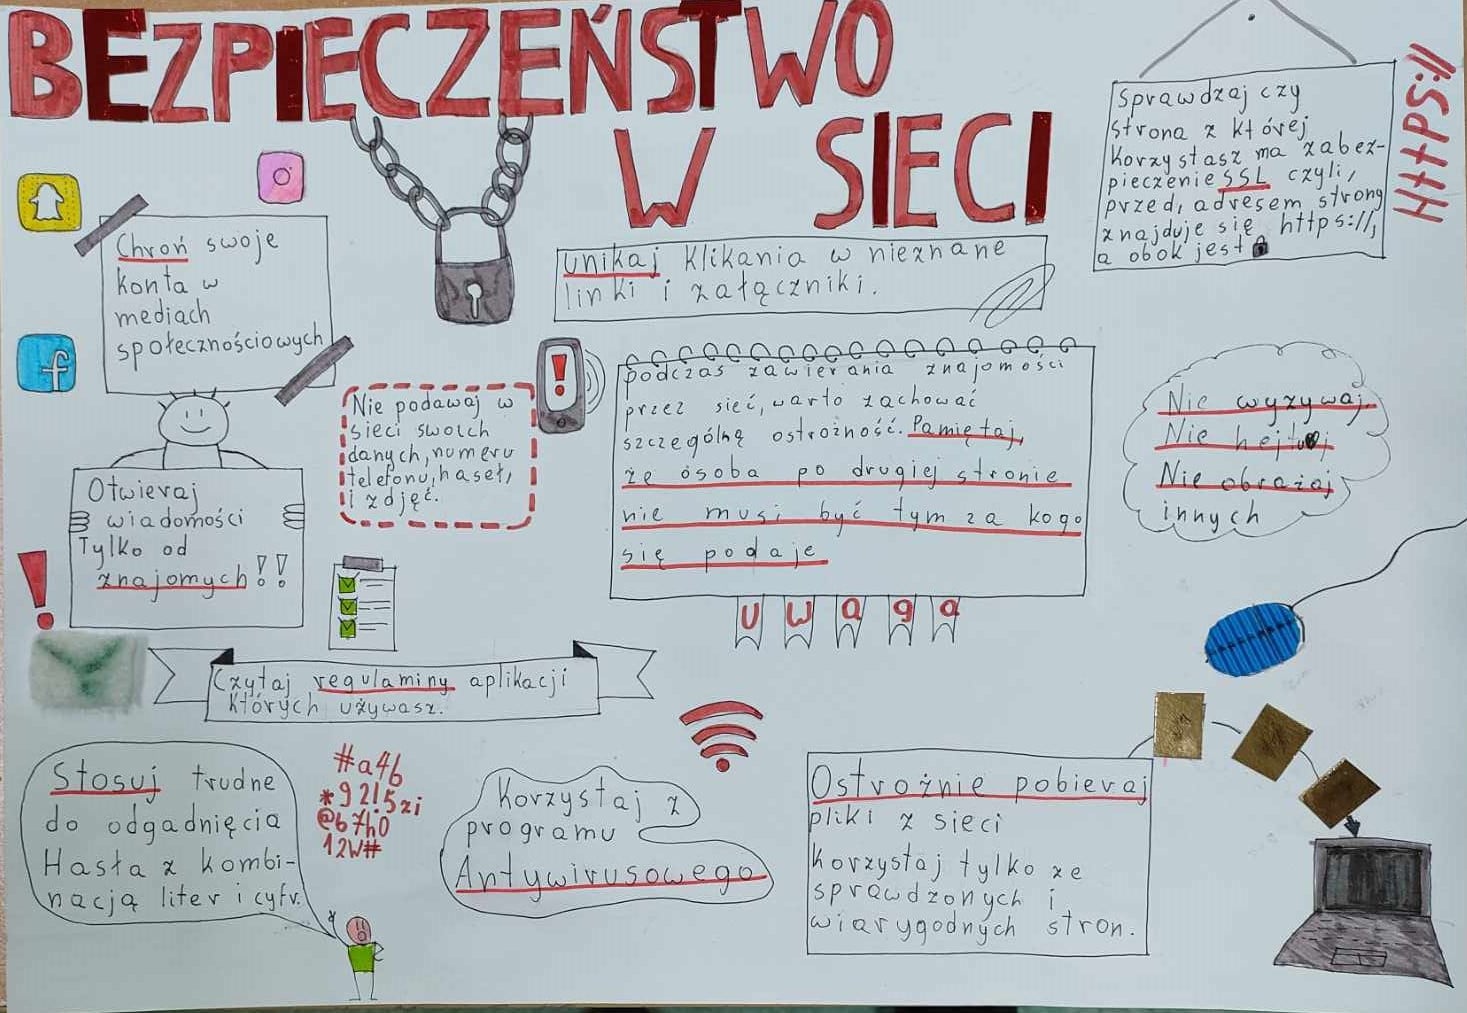 BEZPIECZEŃSTWO
W SIECI
Sprawdzaj czy
strona z której
korzystasz ma zabez-
pieczenie SSL czyli,
przed, adresem strony
znajduje się https://,
a obok jest
Https://
Chroń swoje
konta w
mediach
społecznościowych
unikaj klikania w nieznane
linki i załączniki.
f
Nie podawaj w
sieci swoich
danych, numeru
telefonu, haseł,
i zdjęć.
podczas zawierania znajomości
przez sieć, warto zachować
szczególną ostrożność. Pamiętaj,
że osoba po drugiej stronie
nie musi być tym za kogo
się podaje
uwaga
Nie wyzywaj.
Nie hejtuj
Nie obrażaj
innych
Otwieraj
wiadomości
Tylko od
znajomych!!
Czytaj regulaminy aplikacji
których używasz.
Stosuj trudne
do odgadnięcia
Hasła z kombi-
nacją liter i cyfr.
#a46
*9215zi
@67h0
12W#
Korzystaj z
programu
Antywirusowego
Ostrożnie pobieraj
pliki z sieci
korzystaj tylko ze
sprawdzonych i
wiarygodnych stron.